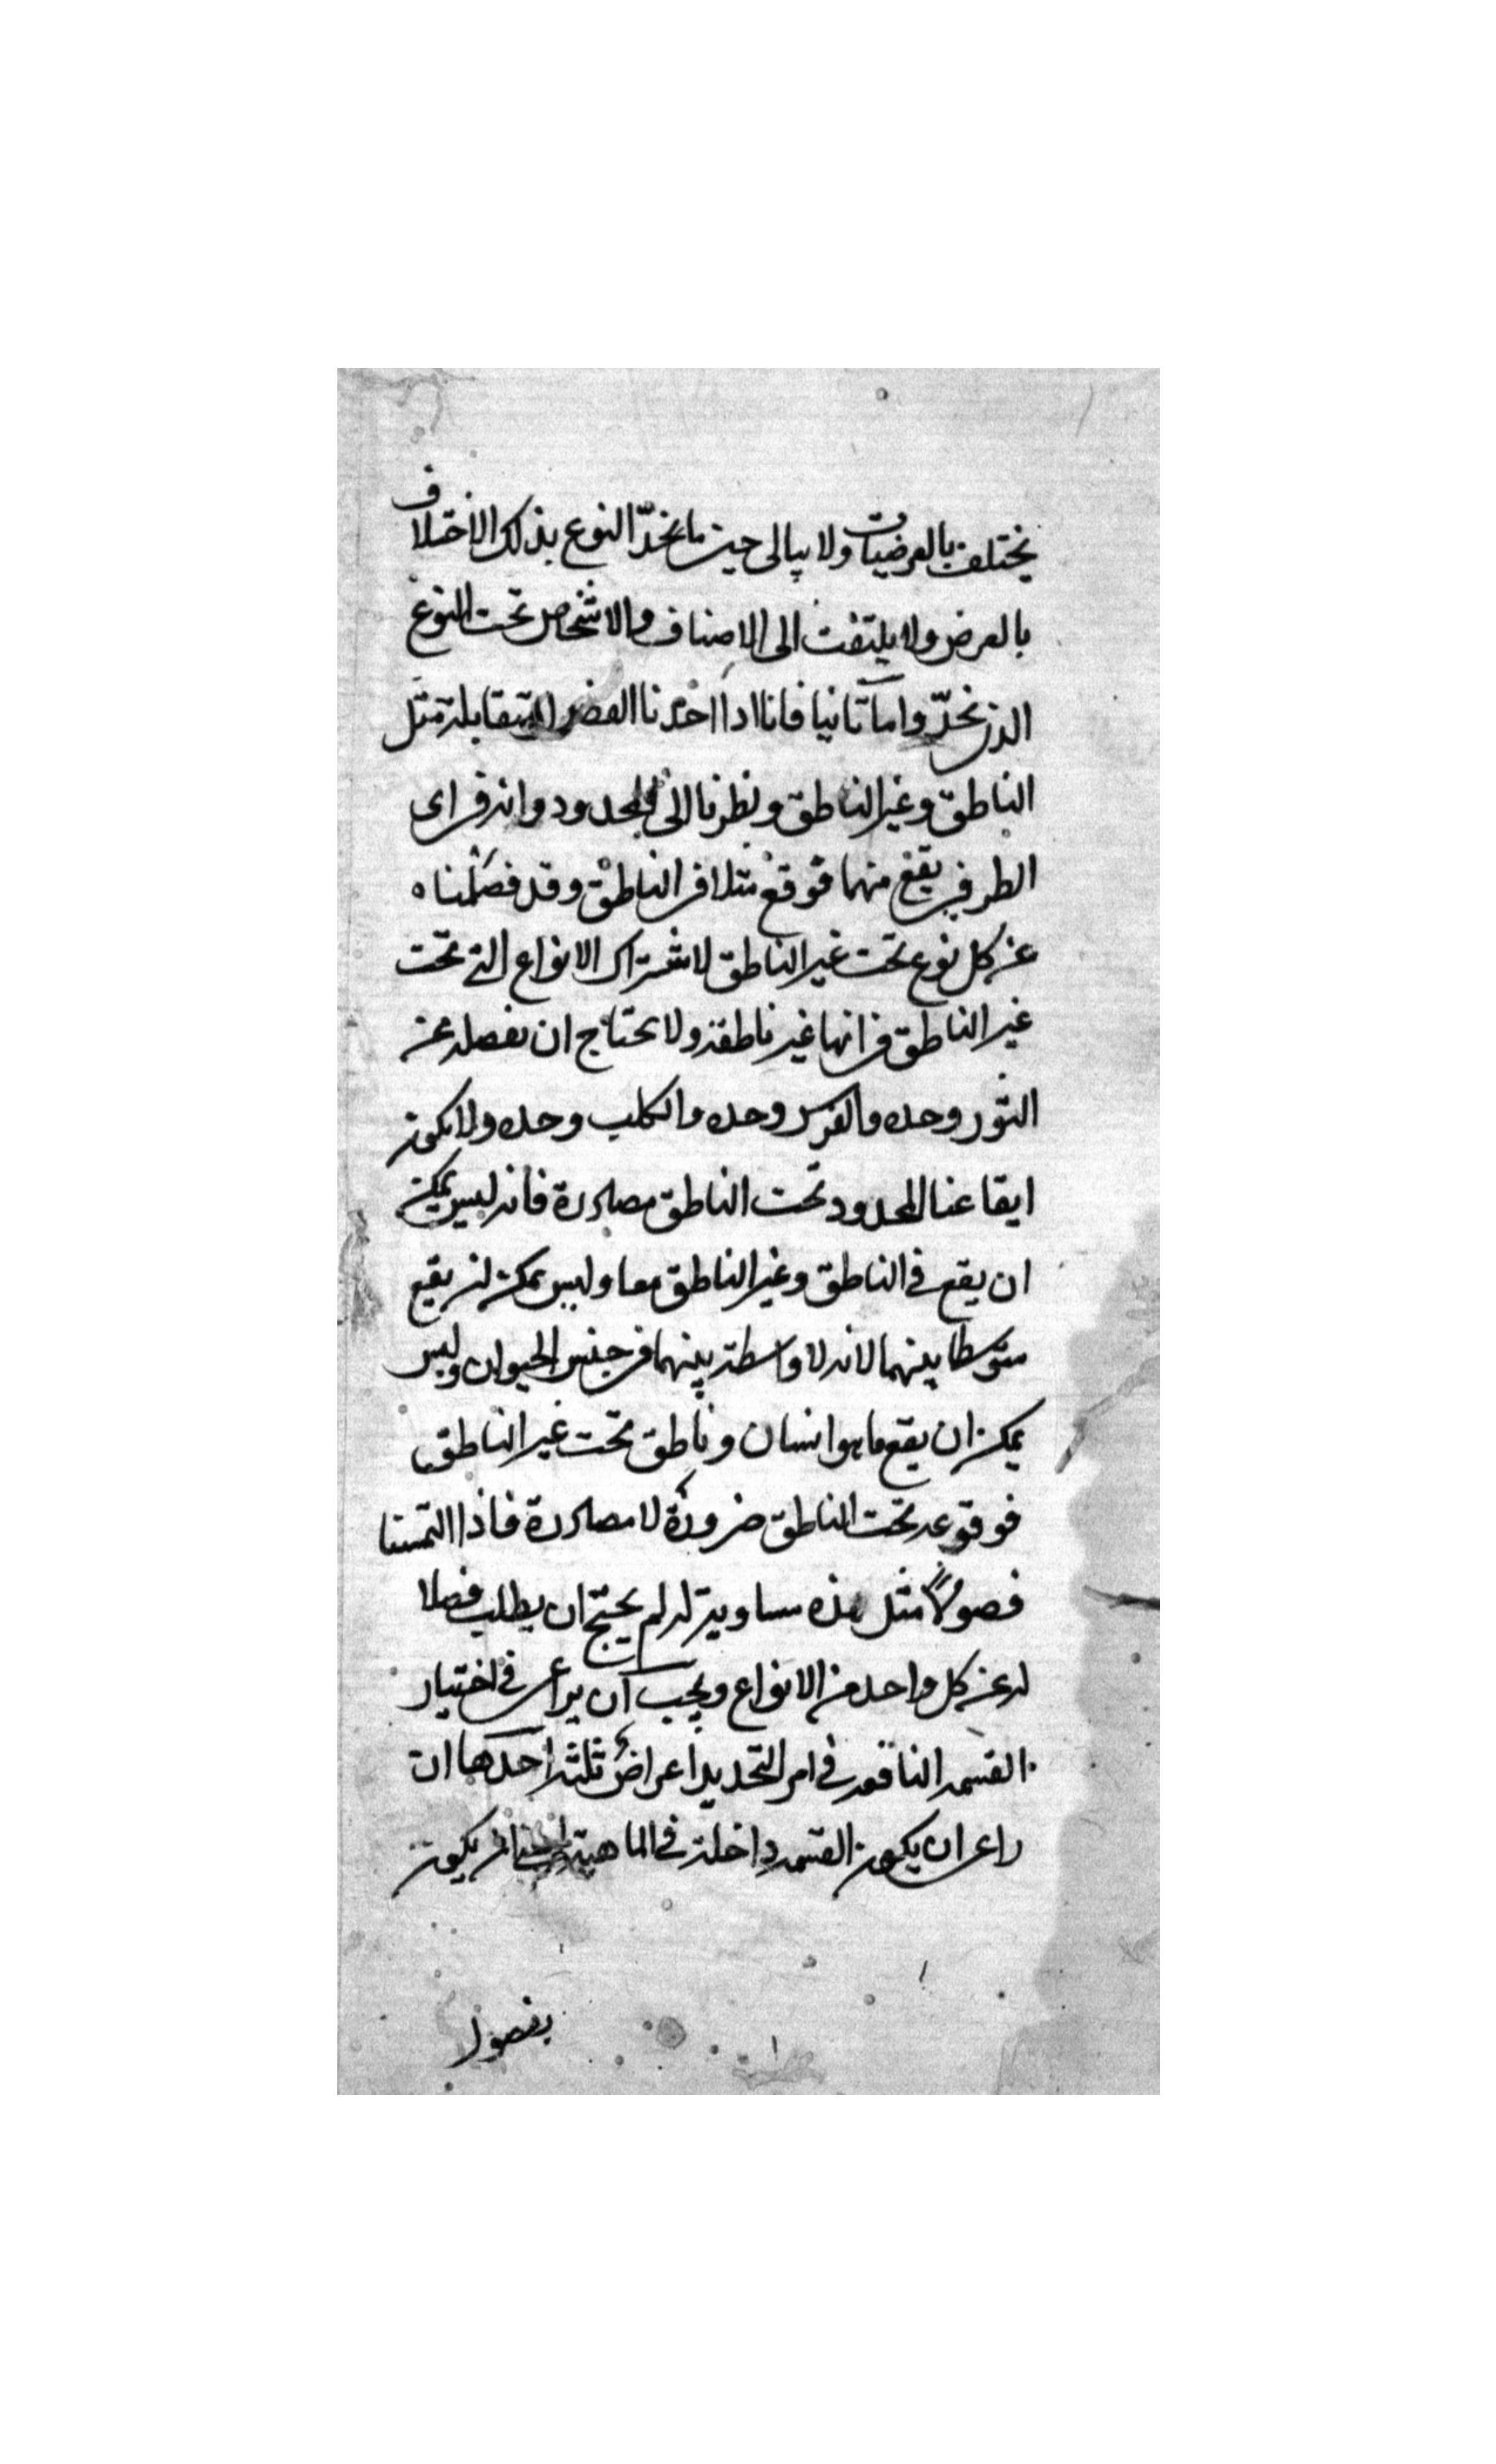 يختلف بالعرضيات ولا يبالى حين ما نحدّ النوع بذلك الاختلاف
بالعرض ولا يلتفت الى الاصناف والاشخاص تحت النوع
الذى نحدّ واما ثانيا فانا اذا اخذنا الفصول المتقابلة مثل
الناطق وغير الناطق ونظرنا الى المحدود وانه فى اى
الطرفين يقع منهما فوقع مثلا فى الناطق وقد فصلناه
عن كل نوع تحت غير الناطق لاشتراك الانواع التى تحت
غير الناطق فى انها غير ناطقة ولا نحتاج ان نفصله عن
الثور وحده والفرس وحده والكلب وحده ولا يكون
ايقاعنا المحدود تحت الناطق مصادرة فانه ليس يمكن
ان يقع فى الناطق وغير الناطق معا وليس يمكن ان يقع
متوسطا بينهما لانه لا واسطة بينهما فى جنس الحيوان وليس
يمكن ان يقع ما هو انسان وناطق تحت غير الناطق
فوقوعه تحت الناطق ضرورة لا مصادرة فاذا التمسنا
فصولاً مثل هذه مساوية له لم يحتج ان يطلب فصلا
له عن كل واحد من الانواع ويجب ان يراعى فى اختيار
القسمة النافعة فى امر التحديد اعراض ثلثة احدها ان
راعى ان يكون القسمة داخلة فى الماهية انما يكون
بفصول